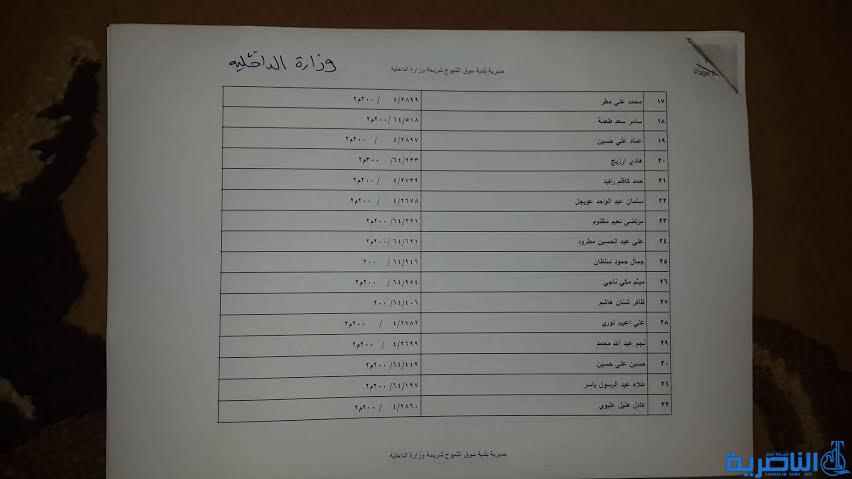 وزارة الداخليه
مديرية بلدية سوق الشيوخ شريحة وزارة الداخلية
Page 2
١٧ محمد علي مطر ٤/٢٨٩٩ / ٢٠٠م٢
١٨ سامر سعد طعمة ٦٤/٥١٨ /٢٠٠م٢
١٩ عماد علي حسين ٤/٢٨٩٧ / ٢٠٠م٢
٢٠ هادي ارزيج ٦٤/٢٣٣ / ٣٠٠م٢
٢١ حمد كاظم رغيد ٤/٢٧٣٩ / ٢٠٠م٢
٢٢ سلمان عبد الواحد عويجل ٤/٢٦٧٨ / ٢٠٠م٢
٢٣ مرتضى نعيم مظلوم ٦٤/٢٢١ /٢٠٠م٢
٢٤ علي عبد الحسين مطرود ٦٤/٦٢١ /٢٠٠م٢
٢٥ جمال حمود سلطان ٦٤/٩٤٦ / ٢٠٠
٢٦ ميثم مكي ناجي ٦٤/٩٥٤ / ٢٠٠م٢
٢٧ ظافر شنان هاشم ٦٤/٤٠٦ / ٢٠٠
٢٨ علي اعبيد نوري ٤/٢٧٨٢ / ٢٠٠م٢
٢٩ نجم عبد الله محمد ٤/٢٦٩٩ / ٢٠٠م٢
٣٠ حسين علي حسين ٦٤/٤٤٩ / ٢٠٠م٢
٣١ علاء عبد الرسول ياسر ٦٤/١٩٧ / ٢٠٠م٢
٣٢ عادل هليل عليوي ٤/٢٨٦٠ / ٢٠٠م٢
مديرية بلدية سوق الشيوخ شريحة وزارة الداخلية
الناصرية